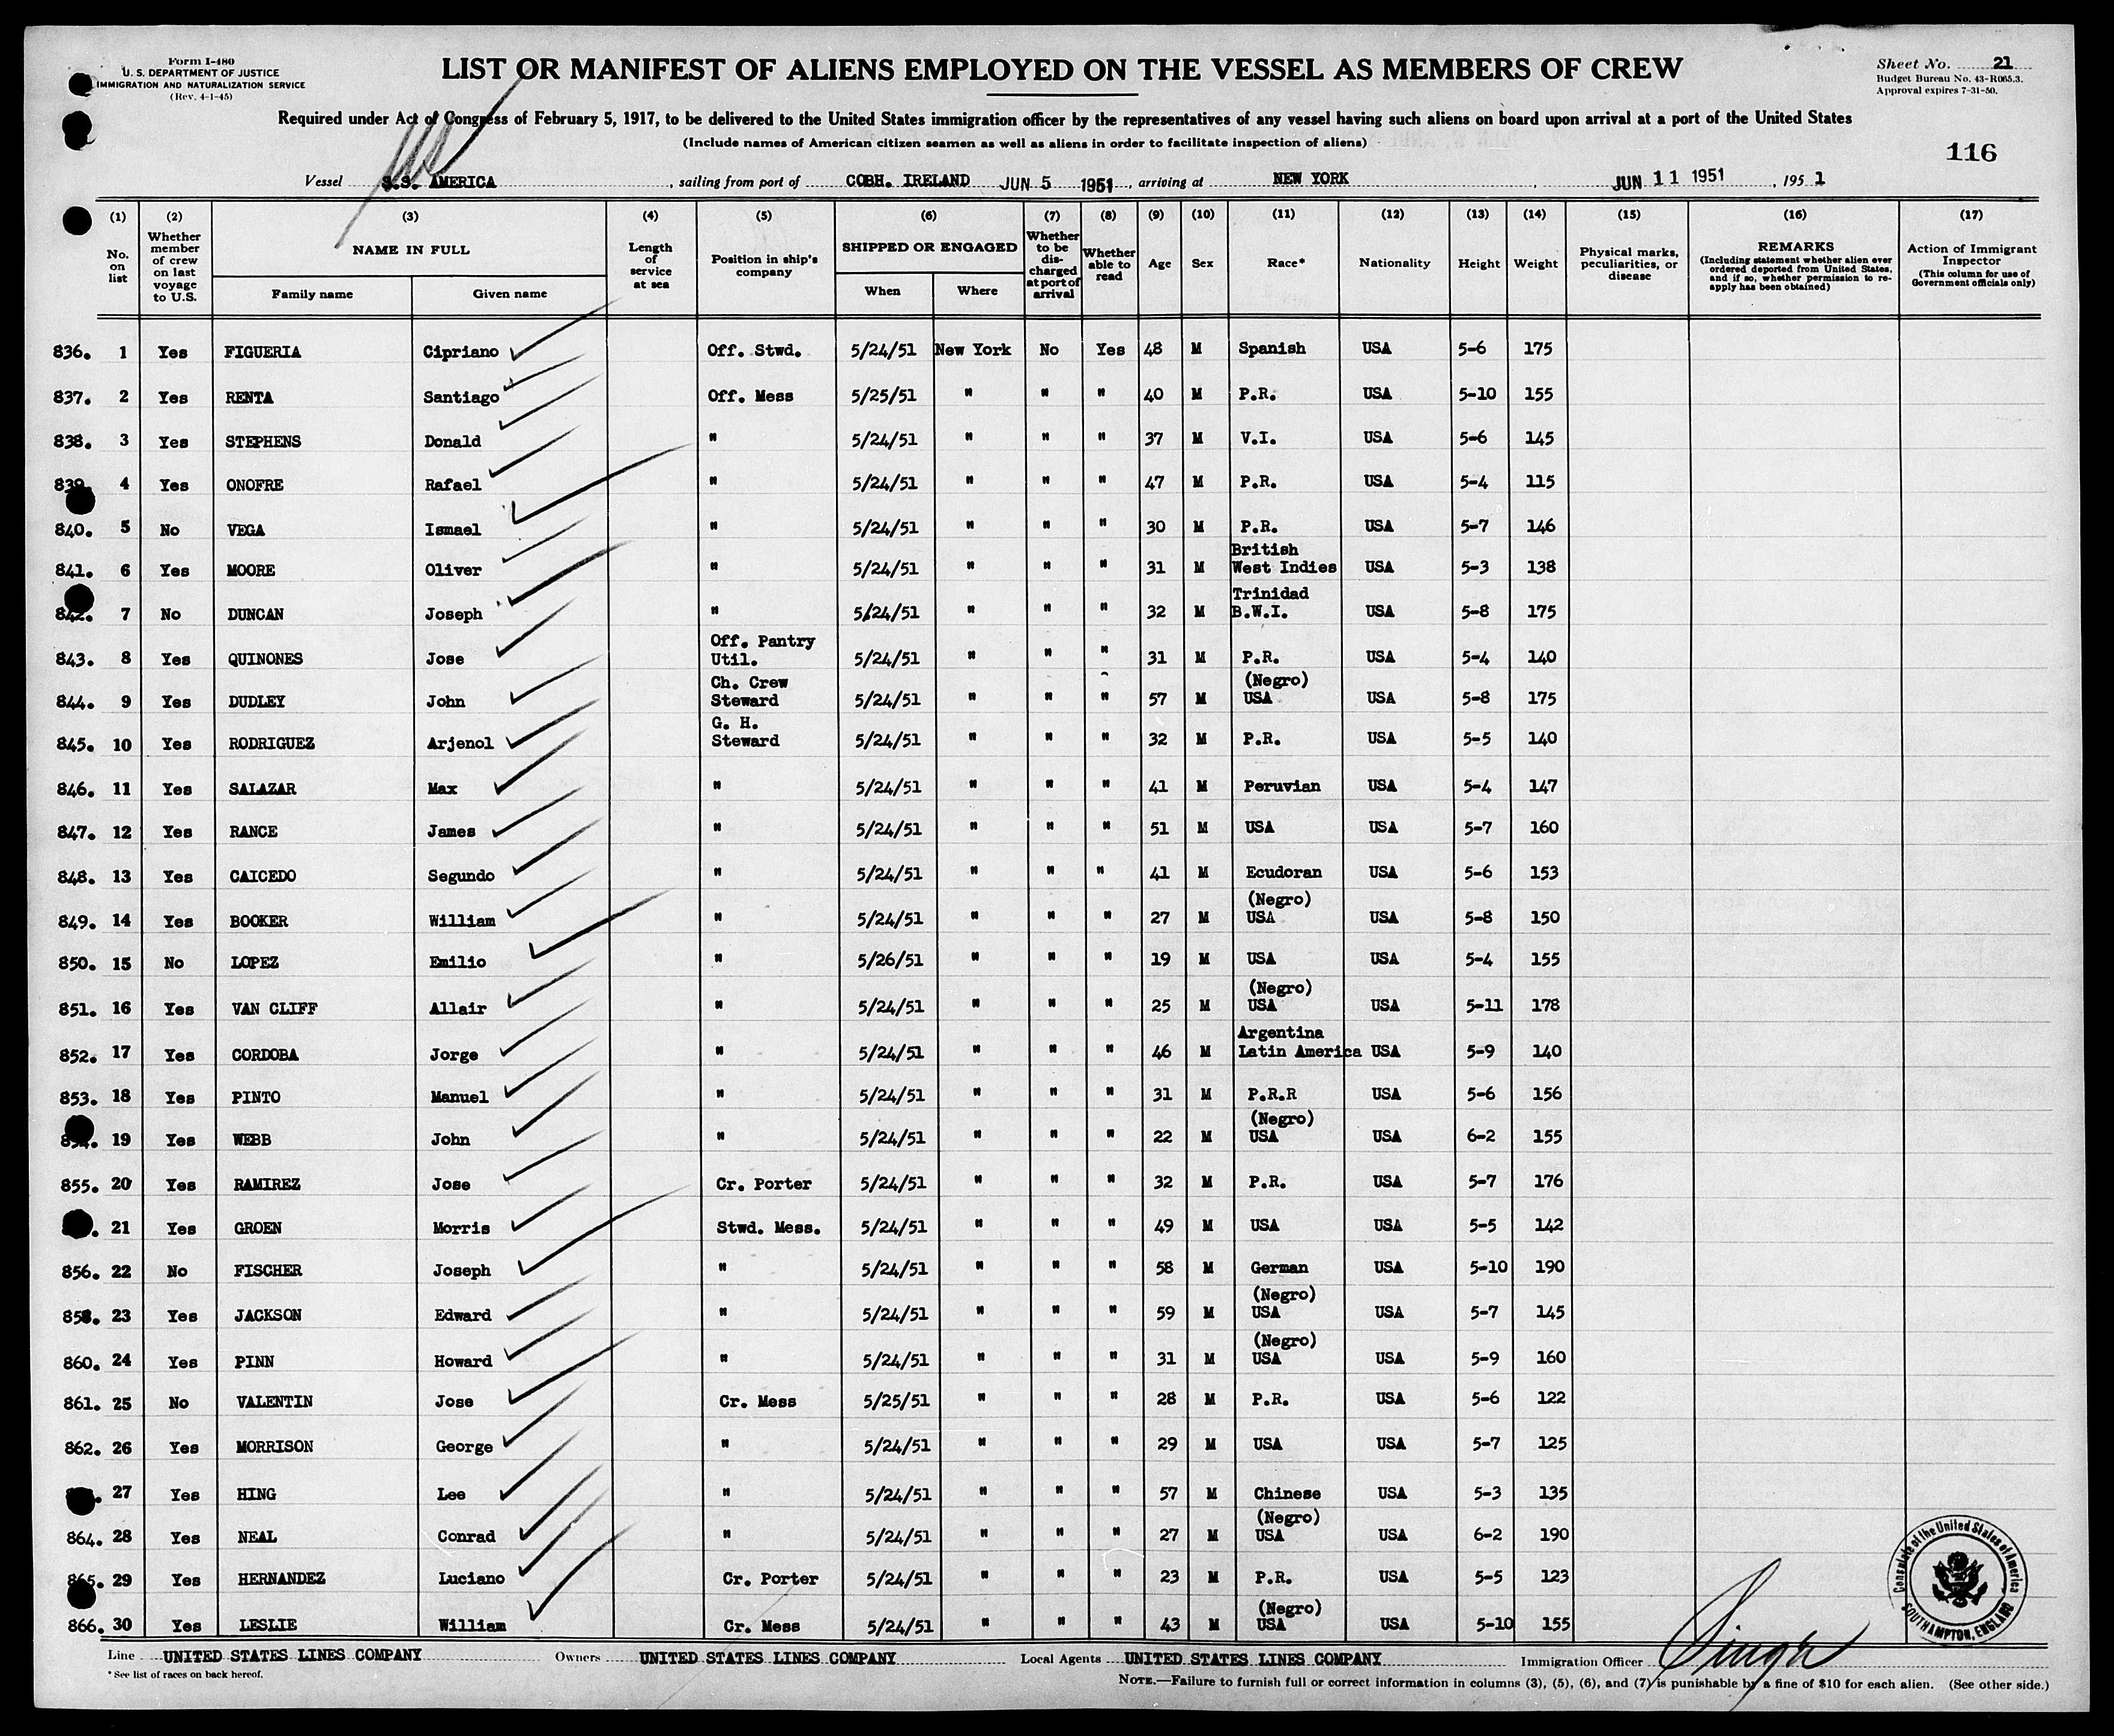 Form I-480
U. S. DEPARTMENT OF JUSTICE
IMMIGRATION AND NATURALIZATION SERVICE
(Rev. 4-1-45)
LIST OR MANIFEST OF ALIENS EMPLOYED ON THE VESSEL AS MEMBERS OF CREW
Sheet No. 21
Budget Bureau No. 43-R065.3.
Approval expires 7-31-50.
Required under Act of Congress of February 5, 1917, to be delivered to the United States immigration officer by the representatives of any vessel having such aliens on board upon arrival at a port of the United States
(Include names of American citizen seamen as well as aliens in order to facilitate inspection of aliens)
116
Vessel S.S. AMERICA, sailing from port of COBH. IRELAND JUN 5 1951, arriving at NEW YORK, JUN 11 1951, 195 1
(1) (2) (3) (4) (5) (6) (7) (8) (9) (10) (11) (12) (13) (14) (15) (16) (17)
No. on list
Whether member of crew on last voyage to U.S.
NAME IN FULL
Family name
Given name
Length of service at sea
Position in ship's company
SHIPPED OR ENGAGED
When
Where
Whether to be discharged at port of arrival
Whether able to read
Age
Sex
Race*
Nationality
Height
Weight
Physical marks, peculiarities, or disease
REMARKS
(Including statement whether alien ever ordered deported from United States, and if so, whether permission to reapply has been obtained)
Action of Immigrant Inspector
(This column for use of Government officials only)
836. 1 Yes FIGUERIA Cipriano Off. Stwd. 5/24/51 New York No Yes 48 M Spanish USA 5-6 175
837. 2 Yes RENTA Santiago Off. Mess 5/25/51 " " " 40 M P.R. USA 5-10 155
838. 3 Yes STEPHENS Donald " 5/24/51 " " " 37 M V.I. USA 5-6 145
839. 4 Yes ONOFRE Rafael " 5/24/51 " " " 47 M P.R. USA 5-4 115
840. 5 No VEGA Ismael " 5/24/51 " " " 30 M P.R. USA 5-7 146
841. 6 Yes MOORE Oliver " 5/24/51 " " " 31 M British West Indies USA 5-3 138
842. 7 No DUNCAN Joseph " 5/24/51 " " " 32 M Trinidad B.W.I. USA 5-8 175
843. 8 Yes QUINONES Jose Off. Pantry Util. 5/24/51 " " " 31 M P.R. USA 5-4 140
844. 9 Yes DUDLEY John Ch. Crew Steward 5/24/51 " " " 57 M (Negro) USA USA 5-8 175
845. 10 Yes RODRIGUEZ Arjenol G. H. Steward 5/24/51 " " " 32 M P.R. USA 5-5 140
846. 11 Yes SALAZAR Max " 5/24/51 " " " 41 M Peruvian USA 5-4 147
847. 12 Yes RANCE James " 5/24/51 " " " 51 M USA USA 5-7 160
848. 13 Yes CAICEDO Segundo " 5/24/51 " " " 41 M Ecudoran USA 5-6 153
849. 14 Yes BOOKER William " 5/24/51 " " " 27 M (Negro) USA USA 5-8 150
850. 15 No LOPEZ Emilio " 5/26/51 " " " 19 M USA USA 5-4 155
851. 16 Yes VAN CLIFF Allair " 5/24/51 " " " 25 M (Negro) USA USA 5-11 178
852. 17 Yes CORDOBA Jorge " 5/24/51 " " " 46 M Argentina Latin America USA 5-9 140
853. 18 Yes PINTO Manuel " 5/24/51 " " " 31 M P.R.R USA 5-6 156
19 Yes WEBB John " 5/24/51 " " " 22 M (Negro) USA USA 6-2 155
855. 20 Yes RAMIREZ Jose Cr. Porter 5/24/51 " " " 32 M P.R. USA 5-7 176
21 Yes GROEN Morris Stwd. Mess. 5/24/51 " " " 49 M USA USA 5-5 142
856. 22 No FISCHER Joseph " 5/24/51 " " " 58 M German USA 5-10 190
23 Yes JACKSON Edward " 5/24/51 " " " 59 M (Negro) USA USA 5-7 145
860. 24 Yes PINN Howard " 5/24/51 " " " 31 M (Negro) USA USA 5-9 160
861. 25 No VALENTIN Jose Cr. Mess 5/25/51 " " " 28 M P.R. USA 5-6 122
862. 26 Yes MORRISON George " 5/24/51 " " " 29 M USA USA 5-7 125
27 Yes HING Lee " 5/24/51 " " " 57 M Chinese USA 5-3 135
864. 28 Yes NEAL Conrad " 5/24/51 " " " 27 M (Negro) USA USA 6-2 190
865. 29 Yes HERNANDEZ Luciano Cr. Porter 5/24/51 " " " 23 M P.R. USA 5-5 123
866. 30 Yes LESLIE William Cr. Mess 5/24/51 " " " 43 M (Negro) USA USA 5-10 155
Consulate of the United States of America
SOUTHAMPTON, ENGLAND
Line UNITED STATES LINES COMPANY Owners UNITED STATES LINES COMPANY Local Agents UNITED STATES LINES COMPANY Immigration Officer
* See list of races on back hereof.
NOTE.—Failure to furnish full or correct information in columns (3), (5), (6), and (7) is punishable by a fine of $10 for each alien. (See other side.)